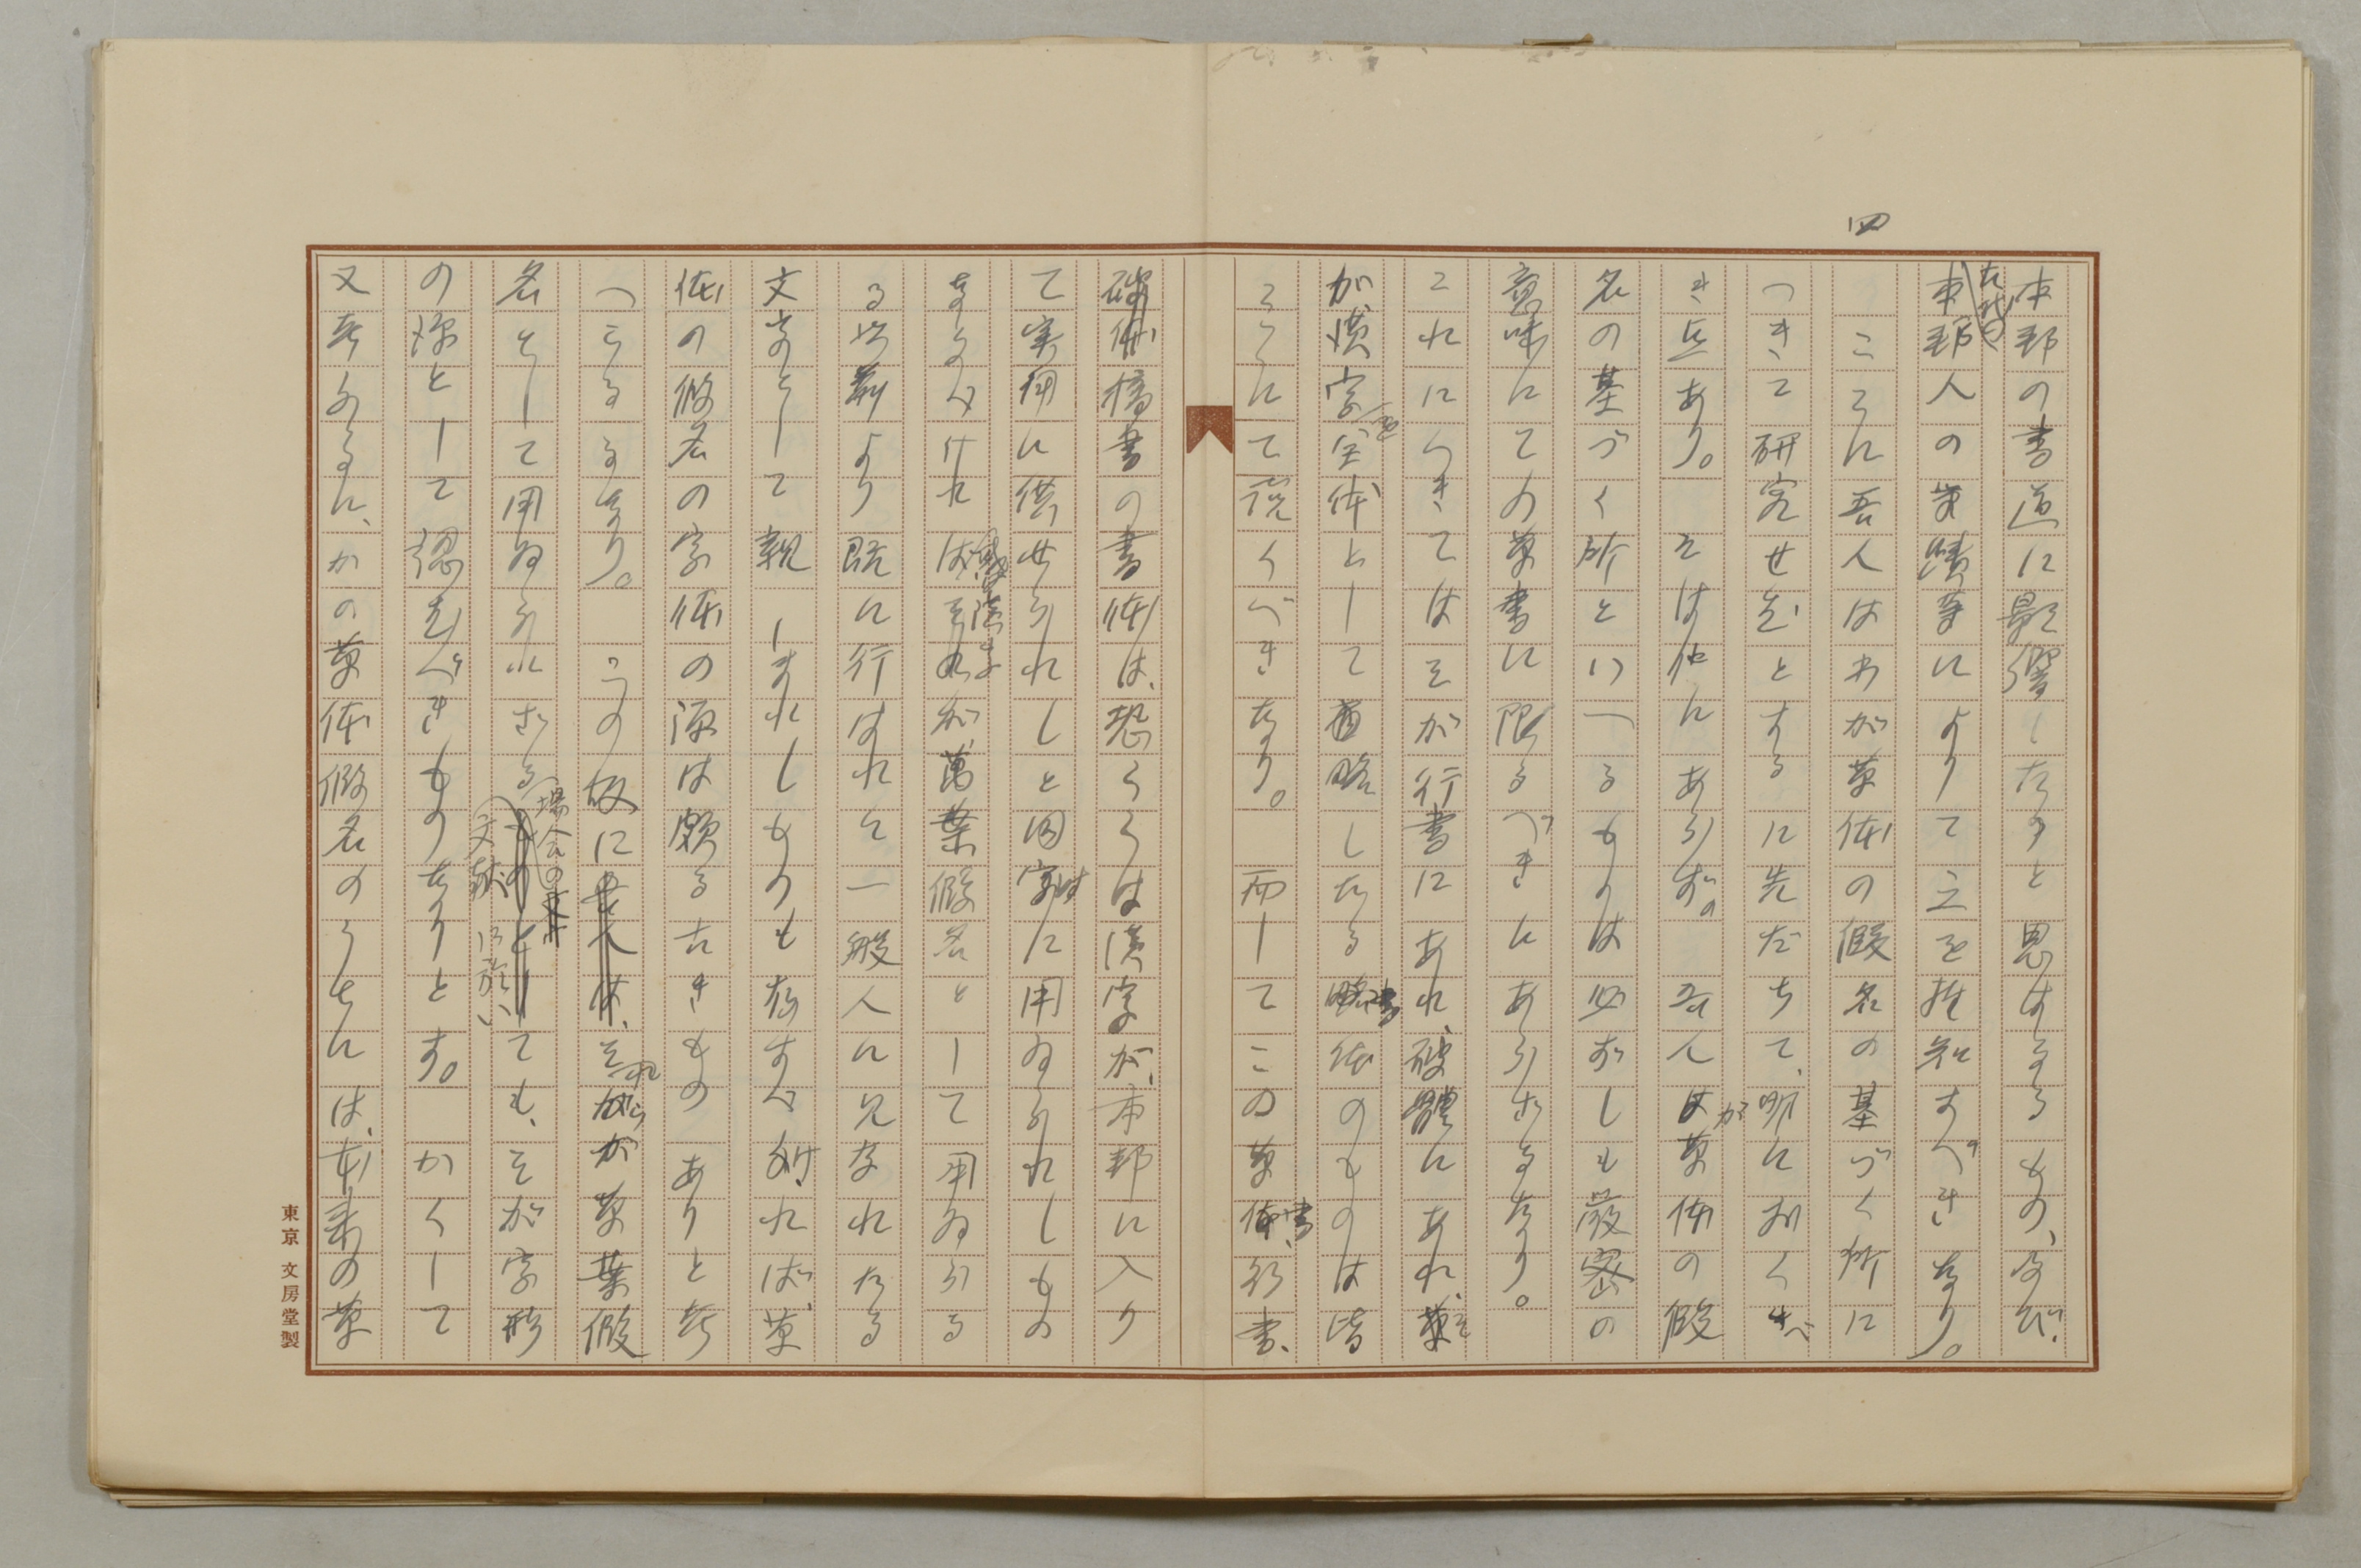 四
本邦の書道に影響したりと思はるるもの、及び、
古代の
本邦人の筆蹟等によりて之を推知すべきなり。
ここに吾人はわが草体の假名の基づく所に
つきて研究せむとするに先だちて、明におくべ
き点あり。そは他にあらず。吾人が草体の假
名の基づく所といへるものは必ずしも厳密の
意味にての草書に限るべきにあらざるなり。
これにつきてはそが行書にあれ、破體にあれ、そ
が漢字を全体として省略したる略書体のものは皆
ここにて説くべきなり。而してこの草書、行書、
破体、楷書の書体は、恐らくは漢字が、本邦に入り
て実用に供せられしと同時に用ゐられしもの
なるべければ、萬葉假名として用ゐらる
る以前より既に行はれて一般人に見なれたる
文字として親しまれしものも存すべければ、草
体の假名の字体の源は頗る古きものありと考
へらるるなり。この故にそれらが草葉假
名として用ゐられざる場合の文献に於いても、そが字形
の源として認むべきものなりとす。かくして
又考ふるに、かの草体假名のうちには、本来の草
東京 文房堂製